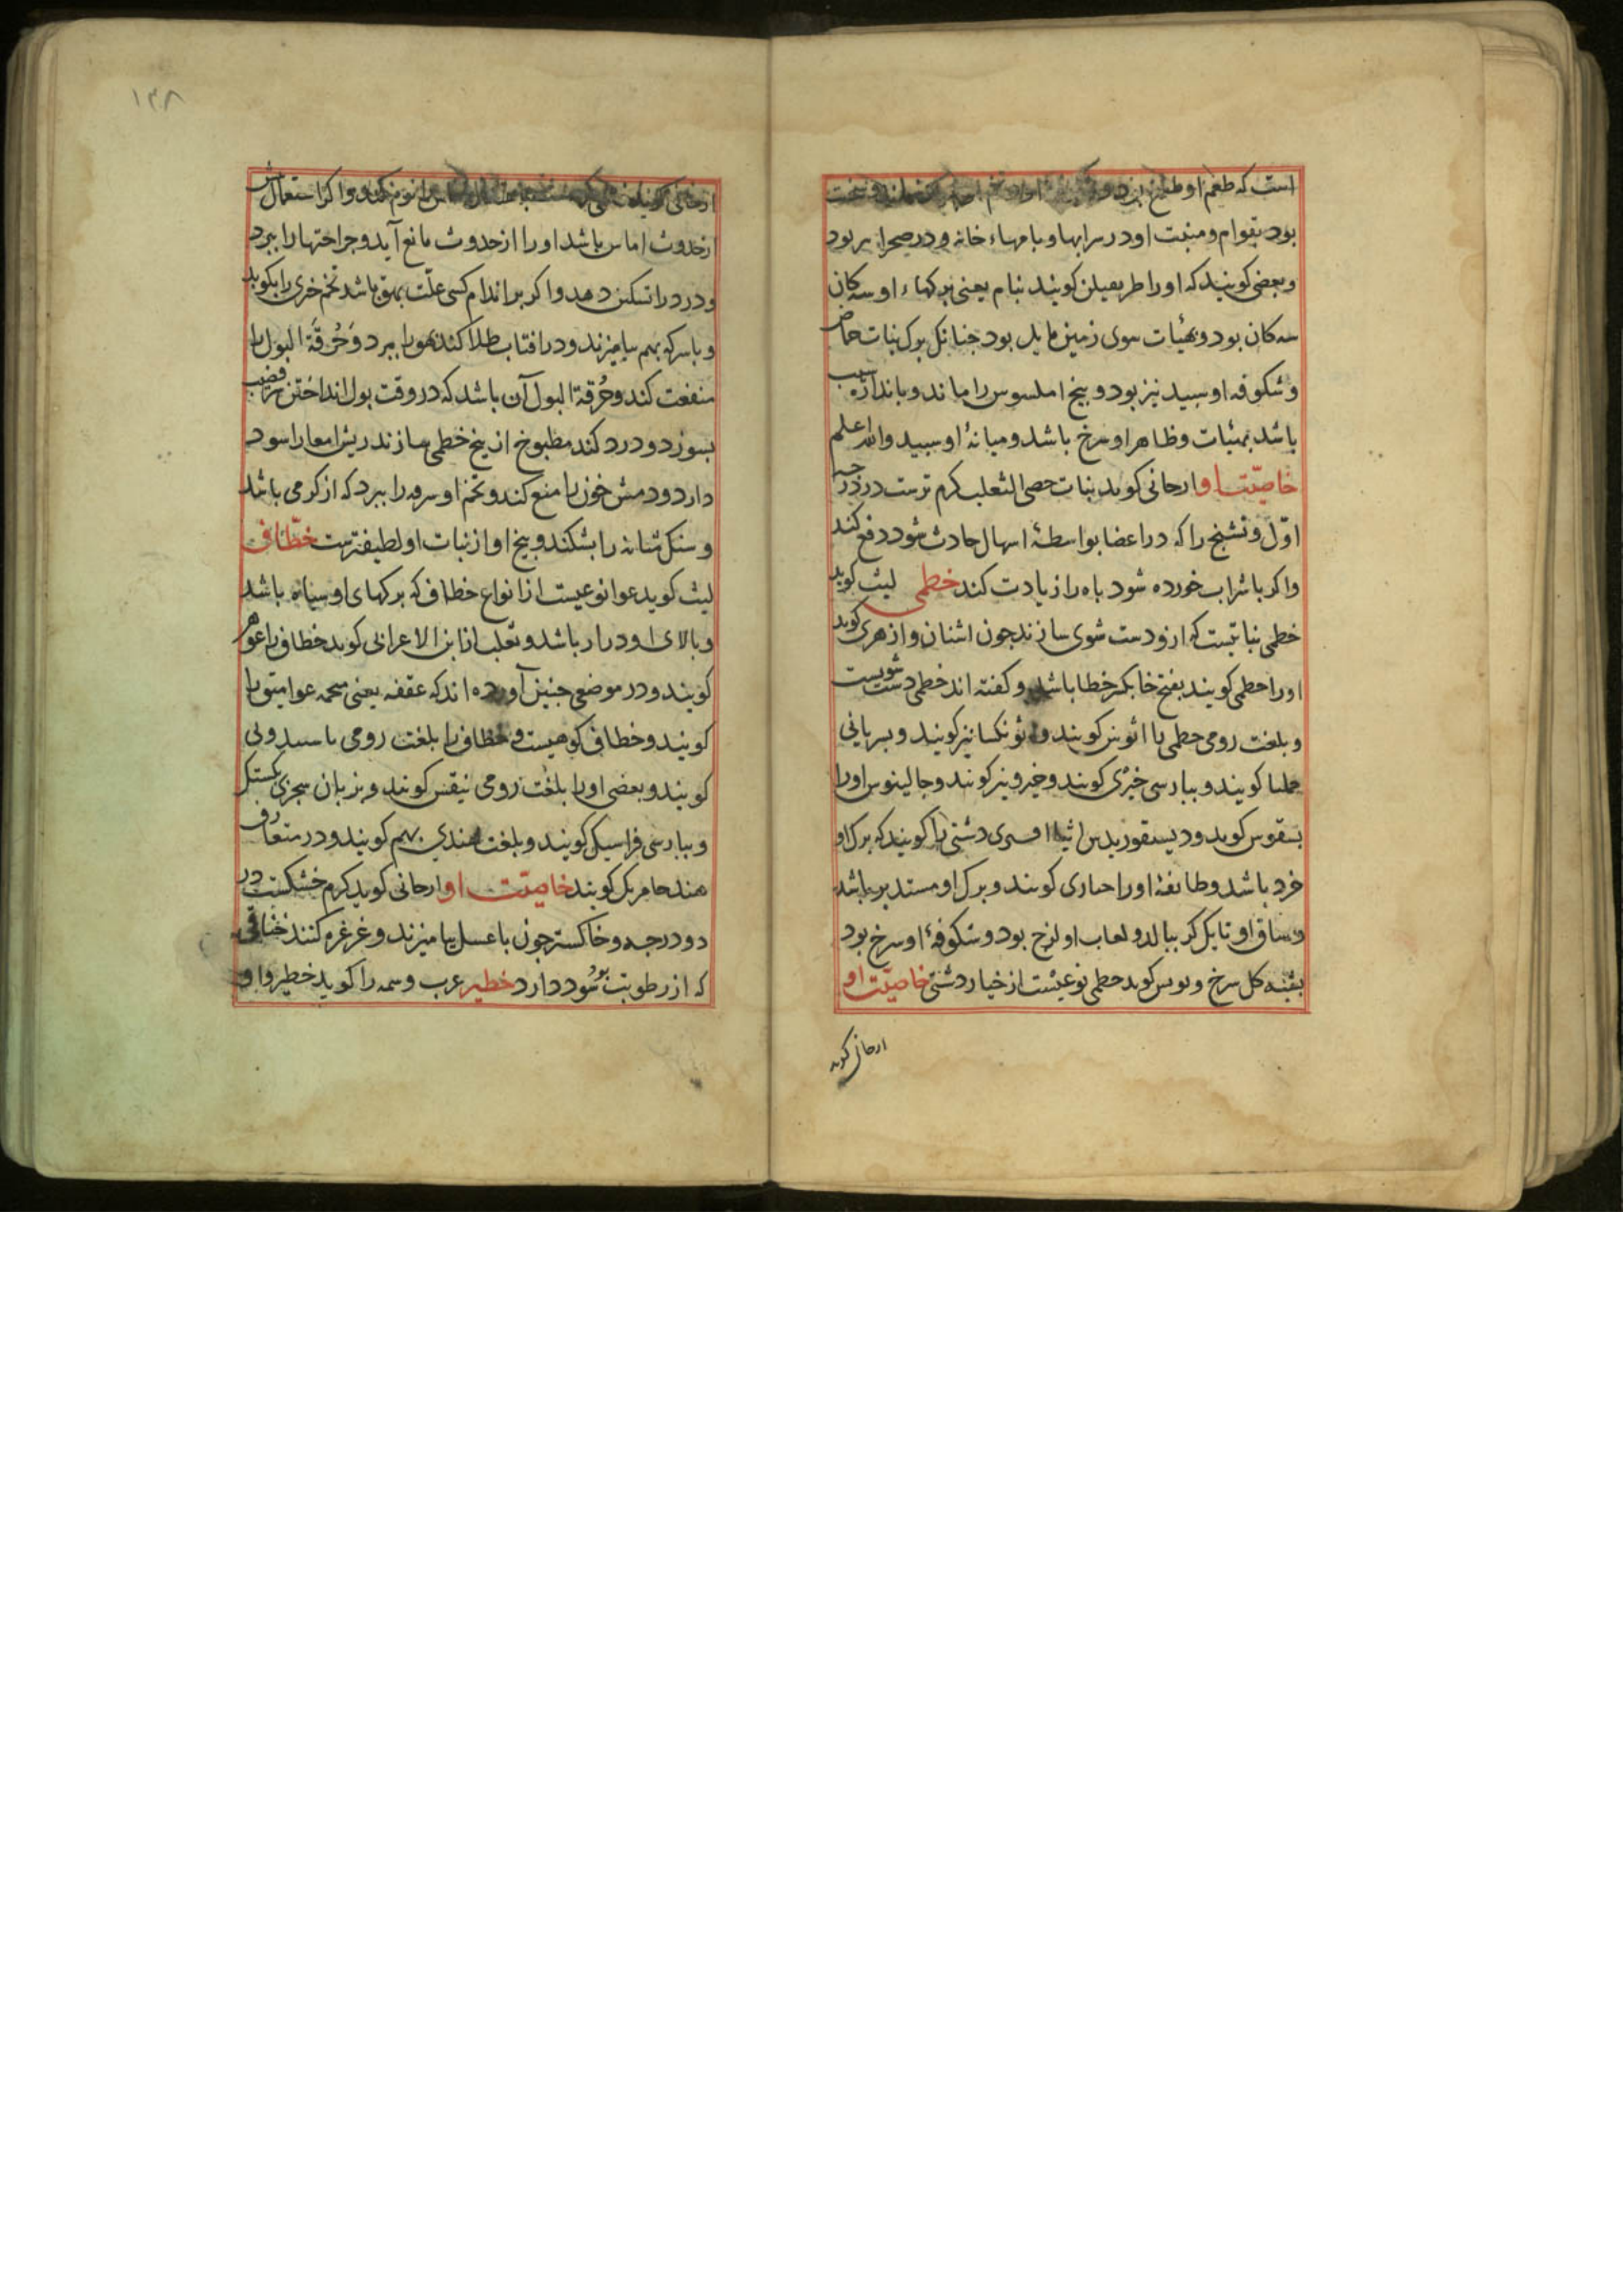 است که طعم او
بود بقوام و منبت او در سرابها و بامهاء خانه و در صحرا نیز بود
و بعضی کویند که او را طریفیلن کویند بنام یعنی برکهاء او سه کان
سه کان بود و بهیات سوی زمین مایل بود جنانک برک بنات حماض
و شکوفه او سبید نیز بود و بیخ او ملسوس را ماند و باندازه سیب
باشد بهیئات و ظاهر او سرخ باشد و میانهٔ او سبید والله اعلم
خاصیّت او ارحانی کوید نبات خصی الثعلب کرم ترست در درجه
اوّل و تشنج را که در اعضا بواسطهٔ اسهال حادث شود دفع کند
و اکر با شراب خورده شود باه را زیادت کند خطمی لیث کوید
خطمی نباتیست که ازو دست شوی سازند جون اشنان و ازهری کوید
او را خطمی کویند بفتح خا بکسر خطا باشد و کفته اند خطمی دست شویست
و بلغت رومی خطمی را کویند و نیز کویند و بسریانی
حلما کویند و ببارسی خیزی کویند و خیرو نیز کویند و جالینوس او را
کوید و دیسقوریدس دشتی را کویند که برک او
خرد باشد و طایفهٔ او را حباری کویند و برک او مستدیر باشد
و ساق او تا بکمر ببالد و لعاب او لزج بود و شکوفهٔ او سرخ بود
کل سرخ و بولس کوید خطمی نوعیست از خیار دشتی خاصیّت او
ارحانی کوید
ارحانی کوید و اکر استعمالش
از حدوث اماس باشد او را از حدوث مانع آید و جراحتها را ببرد
و درد را تسکین دهد و اکر بر اندام کسی علّت بهق باشد تخم خری را بکوبد
و با سرکه بهم بیامیزند و در افتاب طلا کند بهق را ببرد و حُرقَة البول را
منفعت کند و حُرقة البول آن باشد که در وقت بول انداختن سر قضیب
بسوزد و درد کند مطبوخ از بیخ خطمی سازند ریش امعا را سود
دارد و دمش خون را منع کند و تخم او سرفه را ببرد که از کرمی باشد
و سنک مثانه را بشکند و بیخ او از نبات او لطیفترست خطّاف
لیث کوید عوا نوعیست از انواع خطاف که برکهای او سیاه باشد
و بالای او دراز باشد و ثعلب از ابن الاعرابی کوید خطاف را عوهر
کویند و در موضعی جنین آورده اند که عقفه یعنی عوا را
کویند و خطاف کوهیست و خطاف را بلغت رومی
کویند و بعضی او را بلغت رومی کویند و بزبان سجزی
و ببارسی فراسیک کویند و بلغت هندی بهم کویند و در متعارف
هند کویند خاصیّت او ارحانی کوید کرم خشکست در
دو درجه و خاکستر جون با عسل بیامیزند و غرغره کنند خناقی
که از رطوبت بود سُود دارد خطیر عرب وسمه را کوید خطیر و او
۱۳۸